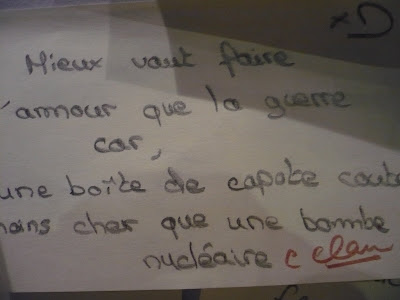 xD
Mieux vaut faire
l'amour que la guerre
car,
une boîte de capote coute
moins cher que une bombe
nucléaire c clau